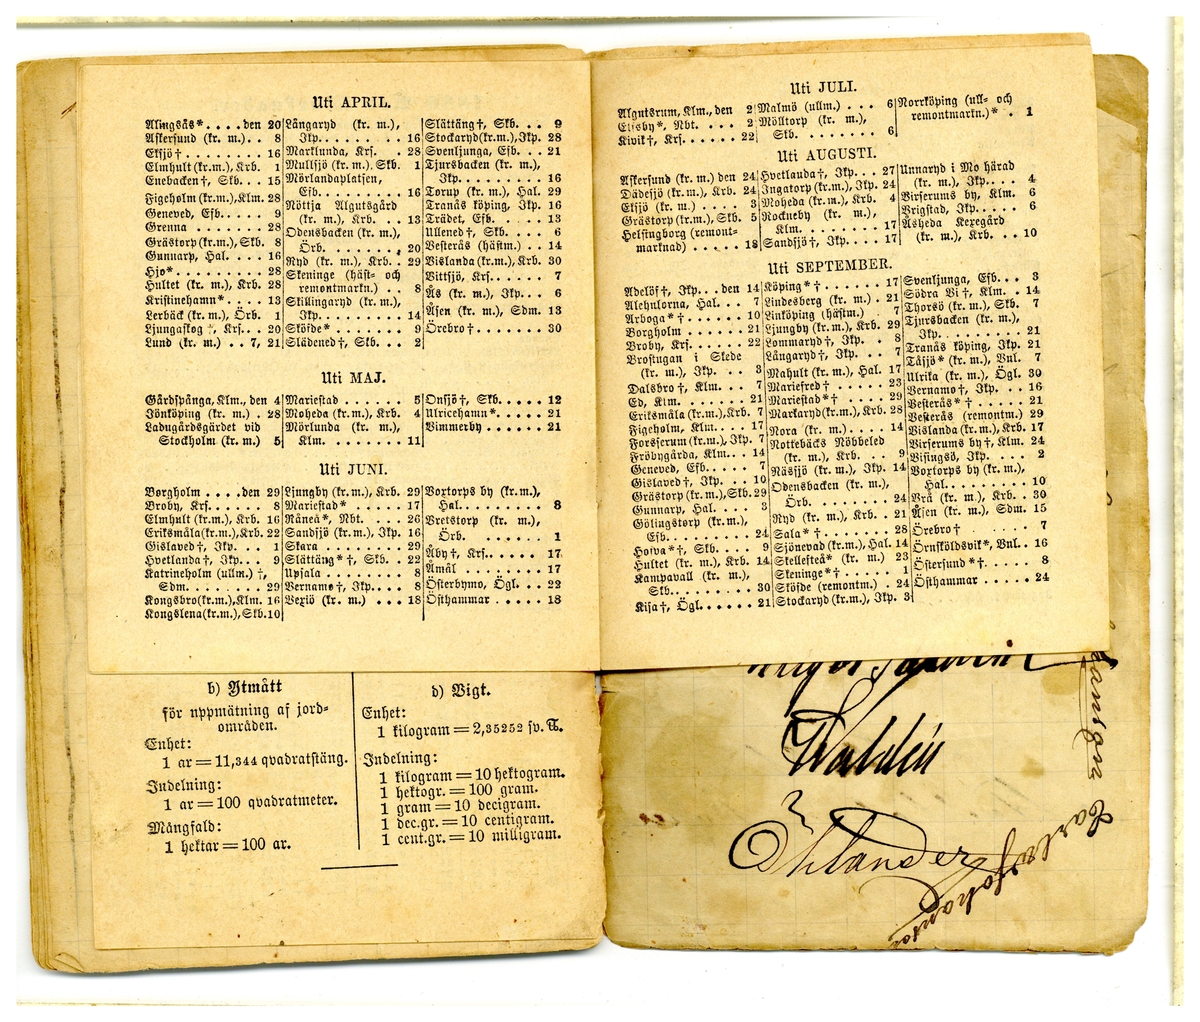 Uti APRIL.
Alingsås* . . . . den 20
Askersund (kr. m.) . . 8
Eksjö † . . . . . . . 16
Elmhult (kr.m.), Krb. 1
Enebacken †, Skb. . . 15
Figeholm (kr.m.), Klm. 28
Geneved, Efb. . . . . 9
Grenna . . . . . . . 28
Grästorp (kr.m.), Skb. 8
Gunnarp, Hal. . . . 16
Hjo* . . . . . . . . 28
Hultet (kr. m.), Krb. 28
Kristinehamn* . . . . 13
Lerbäck (kr. m.), Örb. 1
Ljungaskog †, Krs. . . 20
Lund (kr. m.) . . 7, 21
Långaryd (kr. m.),
Jkp. . . . . . . . 16
Marklunda, Krs. . . 28
Mullsjö (kr. m.), Skb. 1
Mörlandaplatsen,
Efb. . . . . . . . 16
Nöttja Algutsgård
(kr. m.), Krb. . . 13
Odensbacken (kr. m.),
Örb. . . . . . . . 20
Ryd (kr. m.), Krb. . 29
Skeninge (häst- och
remontmarkn.) . . 8
Skillingaryd (kr. m.),
Jkp. . . . . . . . 14
Sköfde* . . . . . . 9
Slädened †, Skb. . . 2
Slättäng †, Skb. . . 9
Stockaryd (kr.m.), Jkp. 28
Svenljunga, Efb. . . 21
Tjursbacken (kr. m.),
Jkp. . . . . . . . 16
Torup (kr. m.), Hal. 29
Tranås köping, Jkp. 16
Trädet, Efb. . . . . 13
Ullened †, Skb. . . . 6
Vesterås (hästm.) . . 14
Vislanda (kr.m.), Krb. 30
Vittsjö, Krs. . . . . 7
Ås (kr. m.), Jkp. . . 6
Åsen (kr. m.), Sdm. 13
Örebro † . . . . . . 30
Uti MAJ.
Gårdspånga, Klm., den 4
Jönköping (kr. m.) . 28
Ladugårdsgärdet vid
Stockholm (kr. m.) 5
Mariestad . . . . . . 5
Moheda (kr. m.), Krb. 4
Mörlunda (kr. m.),
Klm. . . . . . . . 11
Onsjö †, Skb. . . . . 12
Ulricehamn* . . . . . 21
Vimmerby . . . . . . 21
Uti JUNI.
Borgholm . . . . den 29
Broby, Krs. . . . . . 8
Elmhult (kr.m.), Krb. 16
Eriksmåla (kr.m.), Krb. 22
Gislaved †, Jkp. . . . 1
Hvetlanda †, Jkp. . . 9
Katrineholm (ullm.) †,
Sdm. . . . . . . . 29
Kongsbro (kr.m.), Klm. 16
Kongslena (kr.m.), Skb. 10
Ljungby (kr.m.), Krb. 29
Mariestad* . . . . . 17
Råneå*, Nbt. . . . . 26
Sandsjö (kr.m.), Jkp. 16
Skara . . . . . . . . 29
Slättäng* †, Skb. . . 22
Upsala . . . . . . . 8
Vernamo †, Jkp. . . . 8
Vexiö (kr. m.) . . . 18
Voxtorps by (kr. m.),
Hal. . . . . . . . 8
Vretstorp (kr. m.),
Örb. . . . . . . . 1
Åby †, Krs. . . . . . 17
Åmål . . . . . . . . 17
Österbymo, Ögl. . . 22
Östhammar . . . . . 18
b) Ytmått
för uppmätning af jord-
områden.
Enhet:
1 ar = 11,344 qvadratstäng.
Indelning:
1 ar = 100 qvadratmeter.
Mångfald:
1 hektar = 100 ar.
d) Vigt.
Enhet:
1 kilogram = 2,35252 sv. ℔.
Indelning:
1 kilogram = 10 hektogram.
1 hektogr. = 100 gram.
1 gram = 10 decigram.
1 dec.gr. = 10 centigram.
1 cent.gr. = 10 milligram.
Uti JULI.
Algutsrum, Klm., den 2
Elfsby*, Nbt. . . . . 2
Kivik †, Krs. . . . . 22
Malmö (ullm.) . . . 6
Mölltorp (kr. m.),
Skb. . . . . . . . 6
Norrköping (ull- och
remontmarkn.)* . . 1
Uti AUGUSTI.
Askersund (kr. m.) den 24
Dädesjö (kr. m.), Krb. 24
Eksjö (kr. m.) . . . . 3
Grästorp (kr.m.), Skb. 5
Helsingborg (remont-
marknad) . . . . . 18
Hvetlanda †, Jkp. . . 27
Ingatorp (kr.m.), Jkp. 24
Moheda (kr. m.), Krb. 4
Rockneby (kr. m.),
Klm. . . . . . . . 17
Sandsjö †, Jkp. . . . 17
Unnaryd i Mo härad
(kr. m.), Jkp. . . . 4
Virserums by, Klm. . 6
Vrigstad, Jkp. . . . . 6
Åsheda Kexegård
(kr. m.), Krb. . . 10
Uti SEPTEMBER.
Adelöf †, Jkp. . . den 14
Alehulorna, Hal. . . 7
Arboga* † . . . . . . 10
Borgholm . . . . . . 21
Broby, Krs. . . . . . 22
Brostugan i Skede
(kr. m.), Jkp. . . 3
Dalsbro †, Klm. . . . 7
Ed, Klm. . . . . . . 21
Eriksmåla (kr.m.), Krb. 7
Figeholm, Klm. . . . 17
Forsserum (kr.m.), Jkp. 7
Fröbygårda, Klm. . . 14
Geneved, Efb. . . . . 7
Gislaved †, Jkp. . . . 10
Grästorp (kr.m.), Skb. 29
Gunnarp, Hal. . . . 3
Gölingstorp (kr. m.),
Efb. . . . . . . . 24
Hofva* †, Skb. . . . 9
Hultet (kr. m.), Krb. 14
Kampavall (kr. m.),
Skb. . . . . . . . 30
Kisa †, Ögl. . . . . . 21
Köping* † . . . . . . 17
Lindesberg (kr. m.) . 21
Linköping (hästm.) 7
Ljungby (kr. m.), Krb. 29
Lommaryd †, Jkp. . 8
Långaryd †, Jkp. . . 7
Mahult (kr. m.), Hal. 17
Mariefred † . . . . . 23
Mariestad* † . . . . 29
Markaryd (kr. m.), Krb. 28
Nora (kr. m.) . . . . 14
Nottebäcks Nöbbeled
(kr. m.), Krb. . . 9
Näsjö (kr. m.), Jkp. 14
Odensbacken (kr. m.),
Örb. . . . . . . . 24
Ryd (kr. m.), Krb. . 21
Sala* † . . . . . . . 28
Sjönevad (kr.m.), Hal. 14
Skellefteå* (kr. m.) 23
Skeninge* † . . . . . 1
Sköfde (remontm.) . 24
Stockaryd (kr.m.), Jkp. 3
Svenljunga, Efb. . . 3
Södra Vi †, Klm. . . 14
Thorsö (kr. m.), Skb. 7
Tjursbacken (kr. m.),
Jkp. . . . . . . . 21
Tranås köping, Jkp. 21
Tåsjö* (kr. m.), Vnl. 7
Ulrika (kr. m.), Ögl. 30
Vernamo †, Jkp. . . 16
Vesterås* † . . . . . 21
Vesterås (remontm.) 29
Vislanda (kr.m.), Krb. 17
Virserums by †, Klm. 24
Visingsö, Jkp. . . . 2
Voxtorps by (kr. m.),
Hal. . . . . . . . 10
Vrå (kr. m.), Krb. . 30
Åsen (kr. m.), Sdm. 15
Örebro † . . . . . . 7
Örnsköldsvik*, Vnl. . 16
Östersund* † . . . . 8
Östhammar . . . . . 24
Waldén
Öhlander
Carl Johansson